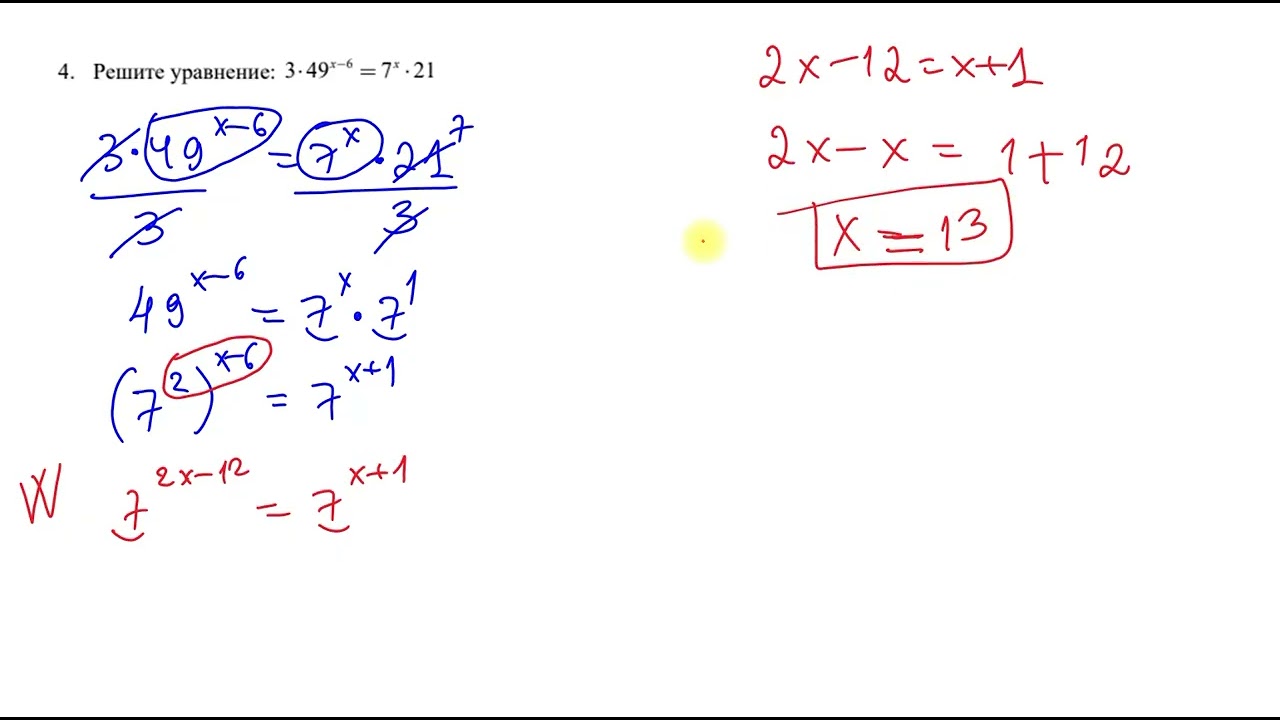 4. Решите уравнение: 3·49^{x−6} = 7^x·21
3·49^{x−6} = 7^x·21 7
3 3
49^{x−6} = 7^x·7^1
(7^2)^{x−6} = 7^{x+1}
W 7^{2x−12} = 7^{x+1}
2x−12=x+1
2x−x = 1+12
x = 13